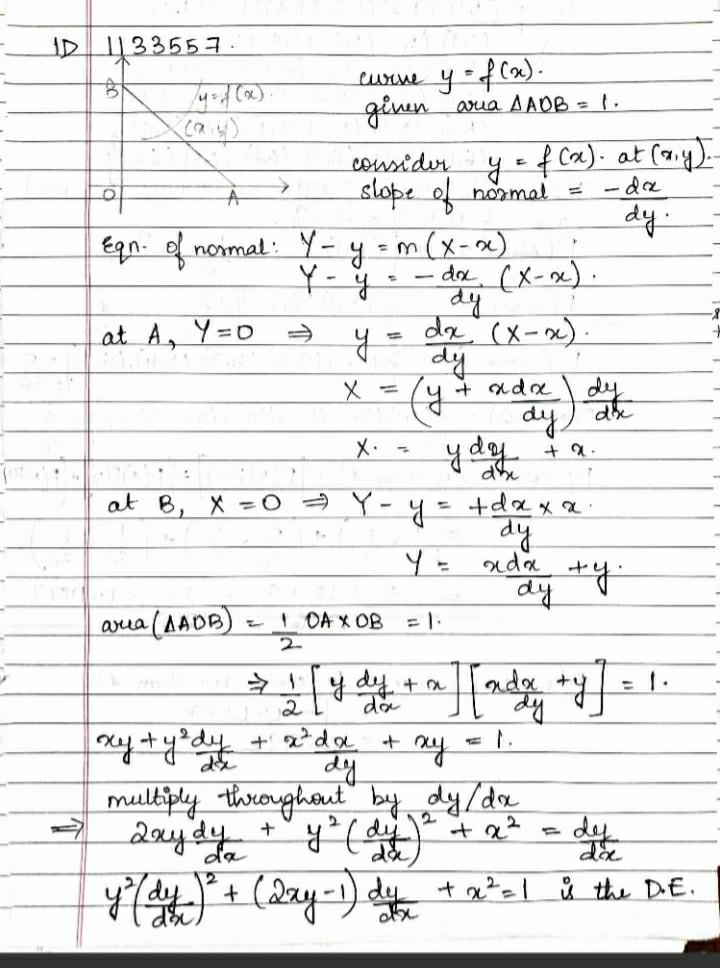 ID 1133557.
B
y=f(x).
(x,y)
O
A
curve y = f(x).
given area ΔAOB = 1.
consider y = f(x). at (x,y).
slope of normal = -dx/dy.
Eqn. of normal: Y - y = m(X-x)
Y - y = -dx/dy (X-x).
at A, Y=0 ⇒ y = dx/dy (X-x).
X = (y + xdx/dy) dy/dx
X. = y dy/dx + x.
at B, X=0 ⇒ Y - y = +dx/dy × x.
Y = xdx/dy + y.
area(ΔAOB) = 1/2 OA × OB = 1.
⇒ 1/2 [y dy/dx + x] [xdx/dy + y] = 1.
xy + y²dy/dx + x²dx/dy + xy = 1.
multiply throughout by dy/dx
⇒ 2xy dy/dx + y² (dy/dx)² + x² = dy/dx
y²(dy/dx)² + (2xy-1) dy/dx + x² = 1 is the D.E.